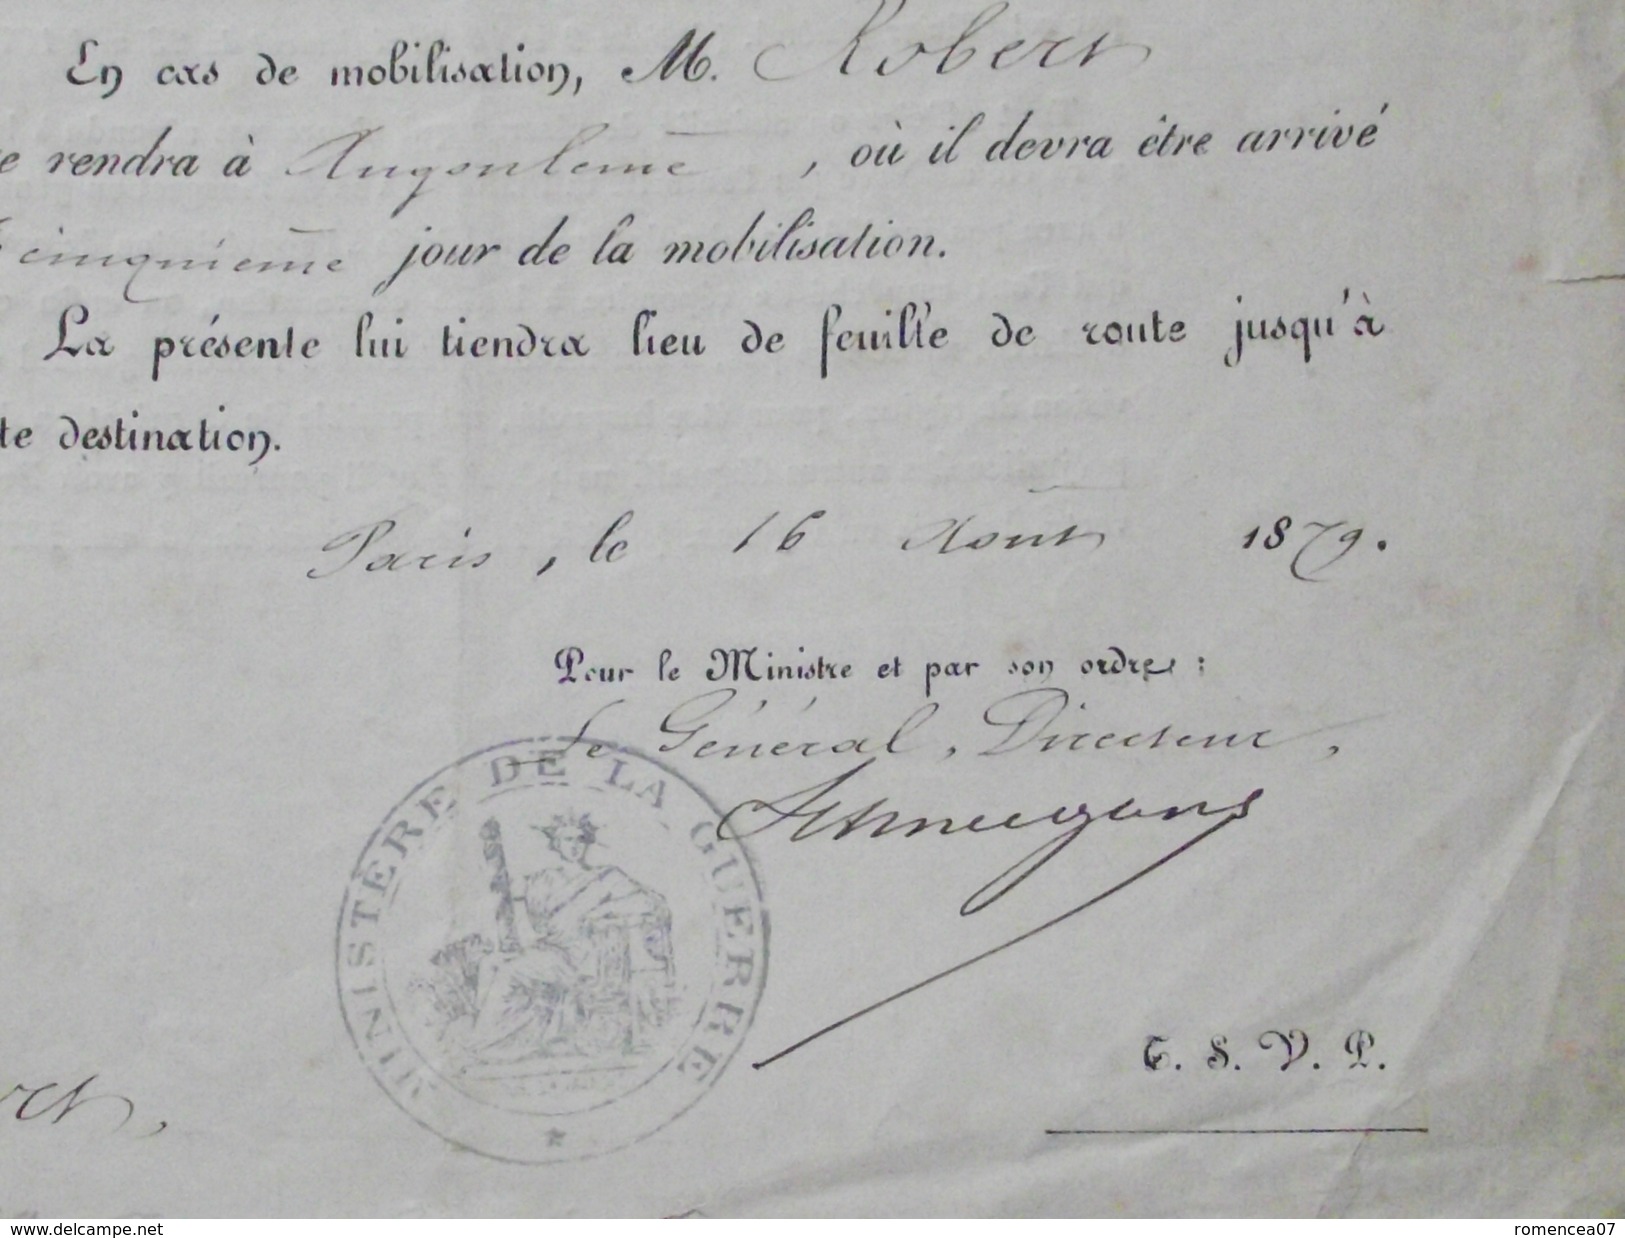 En cas de mobilisation, M. Robert
e rendra à Angoulême, où il devra être arrivé
cinquième jour de la mobilisation.
La présente lui tiendra lieu de feuille de route jusqu'à
te destination.
Paris, le 16 Août 1879.
Pour le Ministre et par son ordre :
Le Général, Directeur,
MINISTÈRE DE LA GUERRE
T. S. V. P.
delcampe.net
romencea07